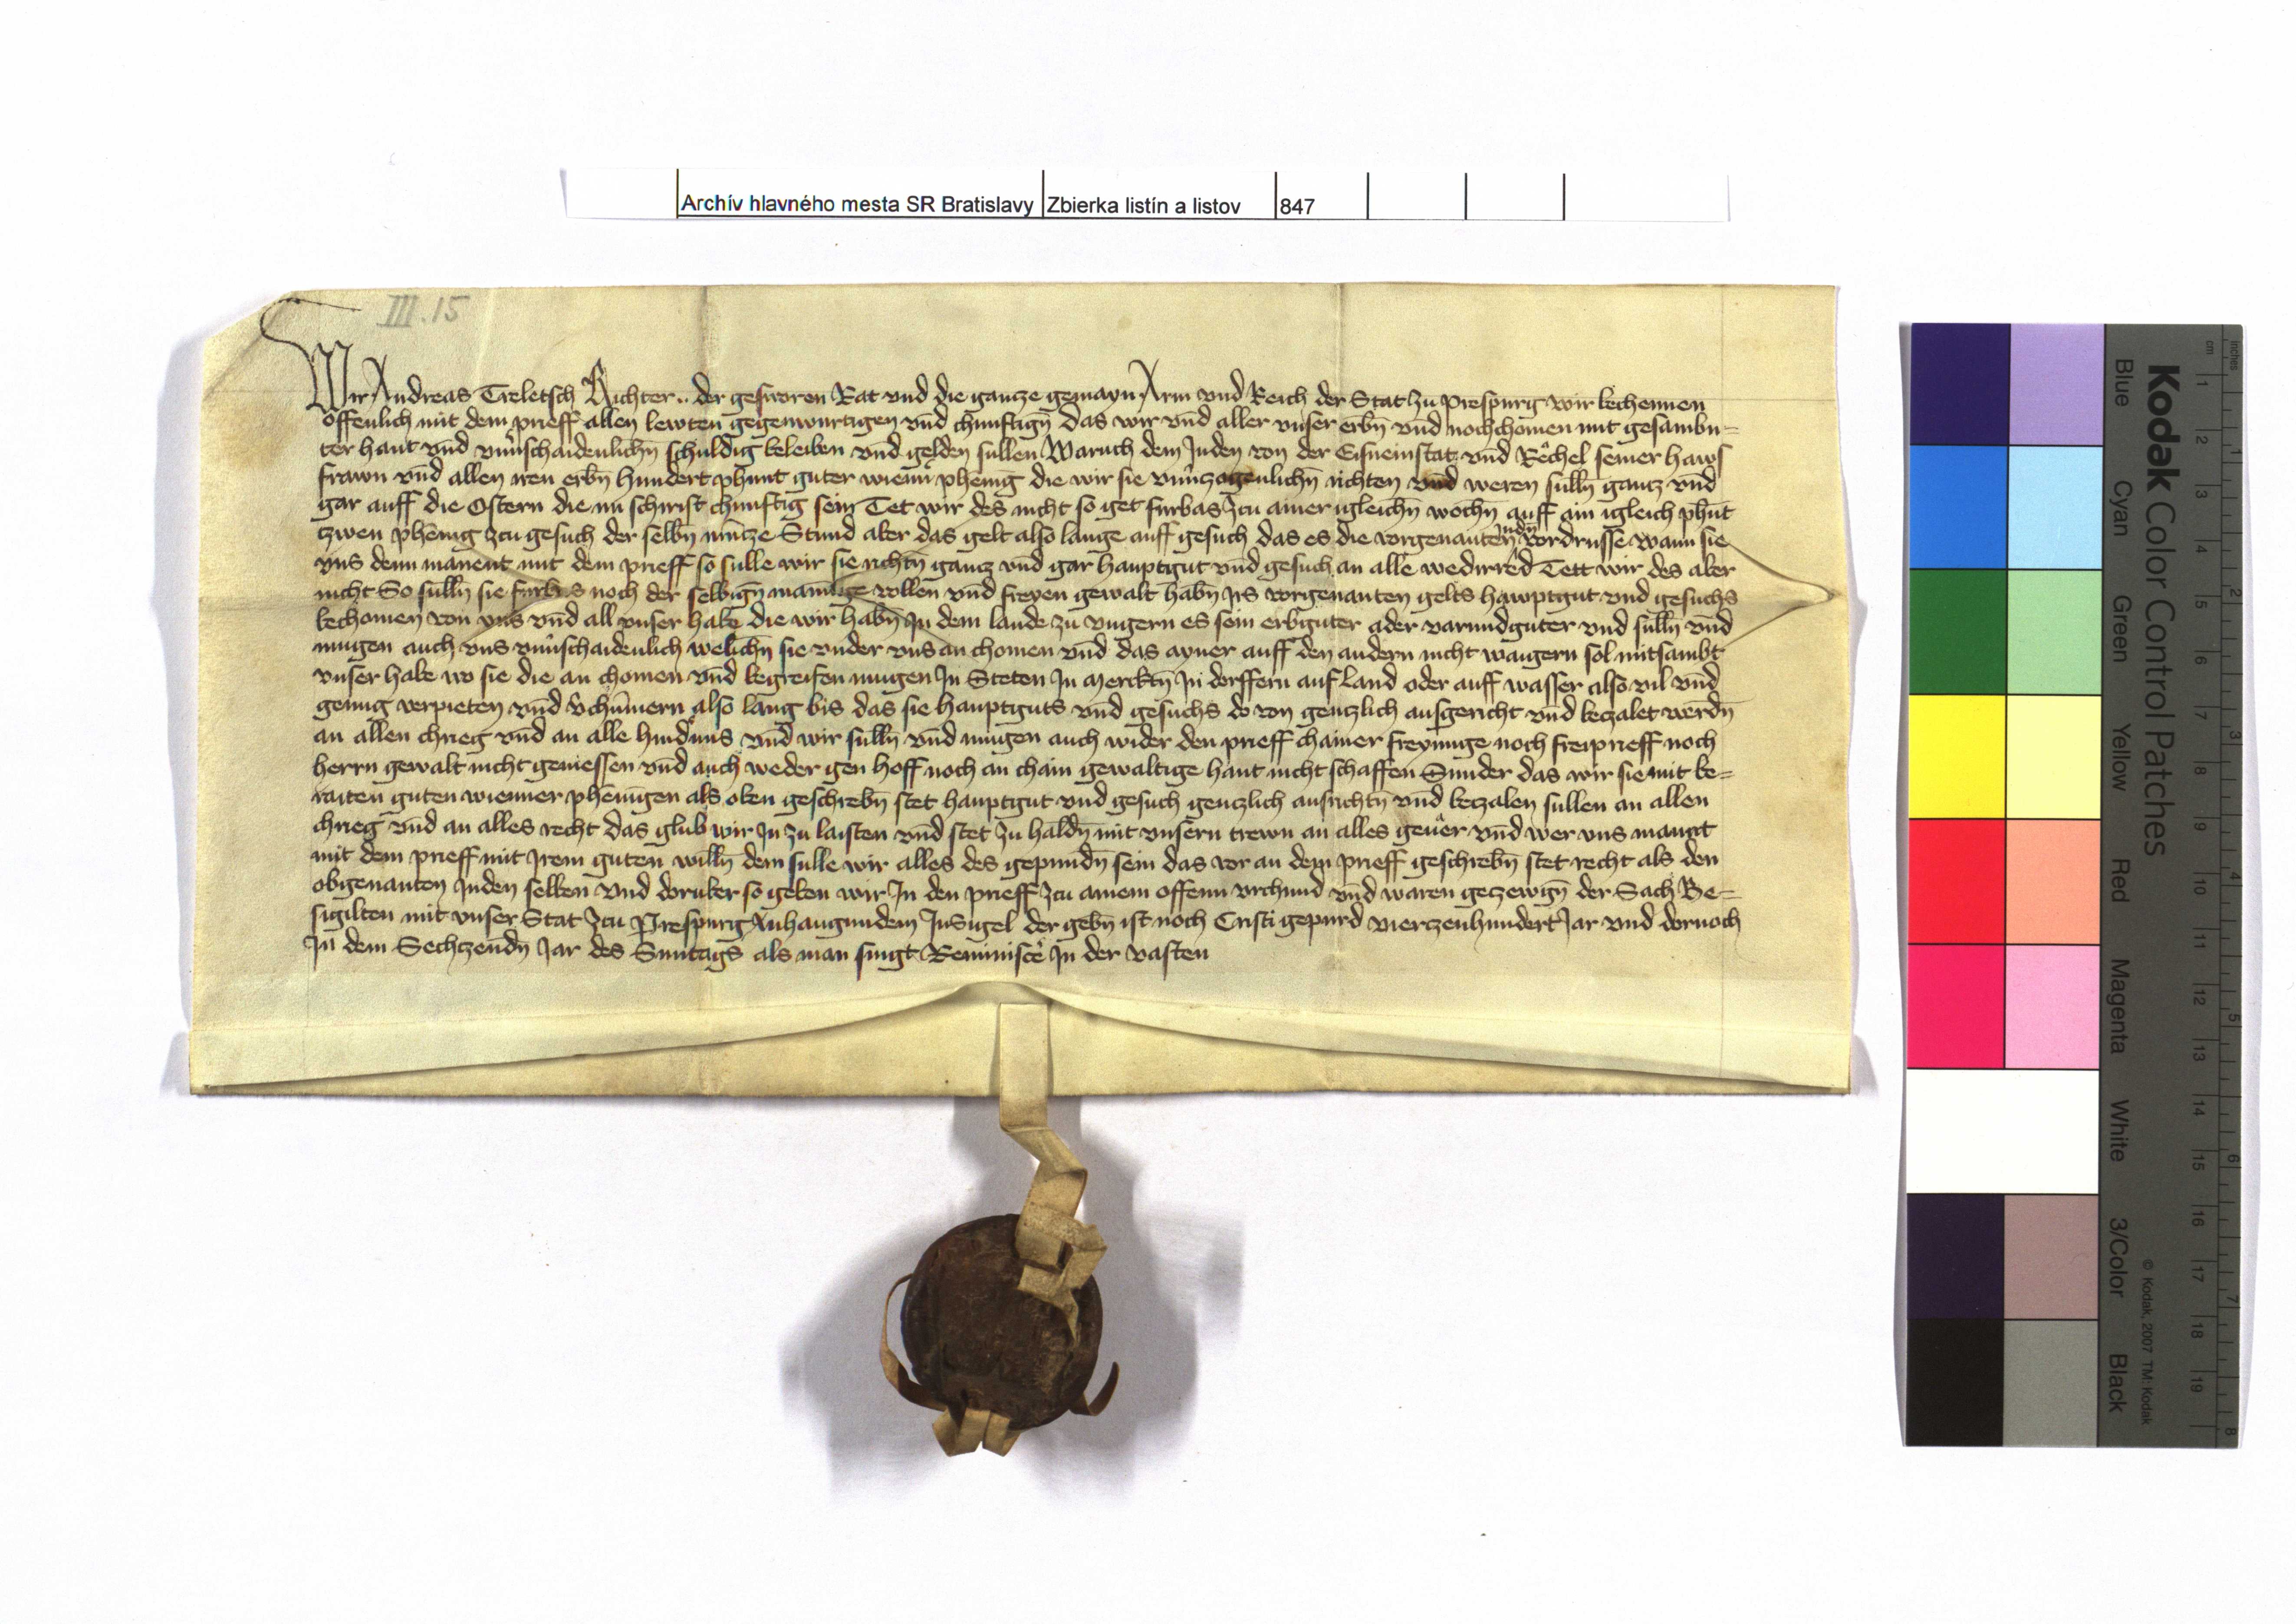 Archív hlavného mesta SR Bratislavy Zbierka listín a listov 847
III.15
Wir Andreas Treletsch Richter .. der gesworen Rat vnd die gancze gemayn Arm vnd Reich der Stat zu Prespurg wir bechennen
offenlich mit dem prieff allen lewten gegenwurtigen vnd chunftign̄ das wir vnd aller vnser erbn̄ vnd nochchomen mit gesambn=
ter hant vnd vnu̕schaidenlichn̄ schuldig beleiben vnd gelden sullen Maruch dem Juden von der Eisneinstat vnd Rechel seiner haws
frawn vnd allen iren erbn̄ hundert phunt guter wienn̕ phenīg die wir sie vnu̕zogenlichn̄ richten vnd weren sulln̄ gancz vnd
gar auff die Ostern die nu schirist chunftig sein Tet wir des nicht so get furbas zcu ainer igleichn̄ wochn̄ auff ain igleich phūt
czwen phēnīg zcu gesuch der selbn̄ mūnze Stund aber das gelt also lange auff gesuch das es die vorgenanten Judn̄ vordrusse wann sie
vns denn manent mit dem prieff so sulle wir sie richtn̄ gancz vnd gar hauptgut vnd gesuch an alle wedirred Tett wir des aber
nicht So sulln̄ sie furbas noch der selbign̄ manūge vollen vnd freyen gewalt habn̄ Irs vorgenanten gelts hawptgut vnd gesuchs
bechomen von vns vnd all vnser habe die wir habn̄ In dem lande zu vngern es sein erbguter ader varundguter vnd sulln̄ vnd
mugen auch vns vnu̕schaidenlich welichn̄ sie vnder vns an chomen vnd das ayner auff den andern nicht waigern sol mitsambt
vnser habe wo sie die an chomen vnd begreifen mugen In Steten In merckten̄ In dorffern auf Land oder auff wasser also vil vnd
genug verpieten vnd v̕chūmern also lang bis das sie hauptguts vnd gesuchs do von genczlich ausgericht vnd beczalet werdn̄
an allen chrieg vnd an alle hind̕nus vnd wir sulln̄ vnd mugen auch wider den prieff chainer freyunge noch freiprieff noch
herrn gewalt nicht geniessen vnd auch weder gen hoff noch an chain gewaltige hant nicht schaffen Sunder das wir sie mit be=
raiten guten wienner phēnīgen als oben geschrebn̄ stet hauptgut vnd gesuch genczlich ausrichtn̄ vnd beczalen sullen an allen
chrieg vnd an alles recht das glub wir In zu laisten vnd stet zu haldn̄ mit vnsern trewn an alles geue̕r vnd wer vns manet
mit dem prieff mit Irem guten willn̄ dem sulle wir alles des gepundn̄ sein das vor an dem prieff geschrebn̄ stet recht als den
obgenanten Juden selben vnd doruber so geben wir In den prieff zcu ainem offenn vrchund vnd waren geczewign̄ der Sach Be=
sigilten mit vnser Stat zcu Prespurg Anhangundem Insigel der gebn̄ ist noch Cristi gepurd vierczenhundert Jar vnd dornoch
In dem Sechczendn̄ Jar des Suntags als man singt Reminisce̕ In der vasten
Kodak Color Control Patches
Blue Cyan Green Yellow Red Magenta White 3/Color Black
© Kodak, 2007 TM: Kodak
inches 1 2 3 4 5 6 7 8
cm 1 2 3 4 5 6 7 8 9 10 11 12 13 14 15 16 17 18 19